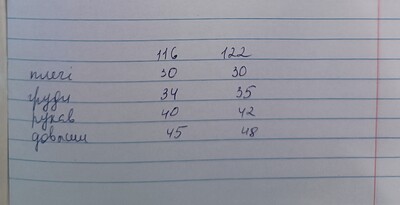 116 122
плечі 30 30
груди 34 35
рукав 40 42
довжин 45 48